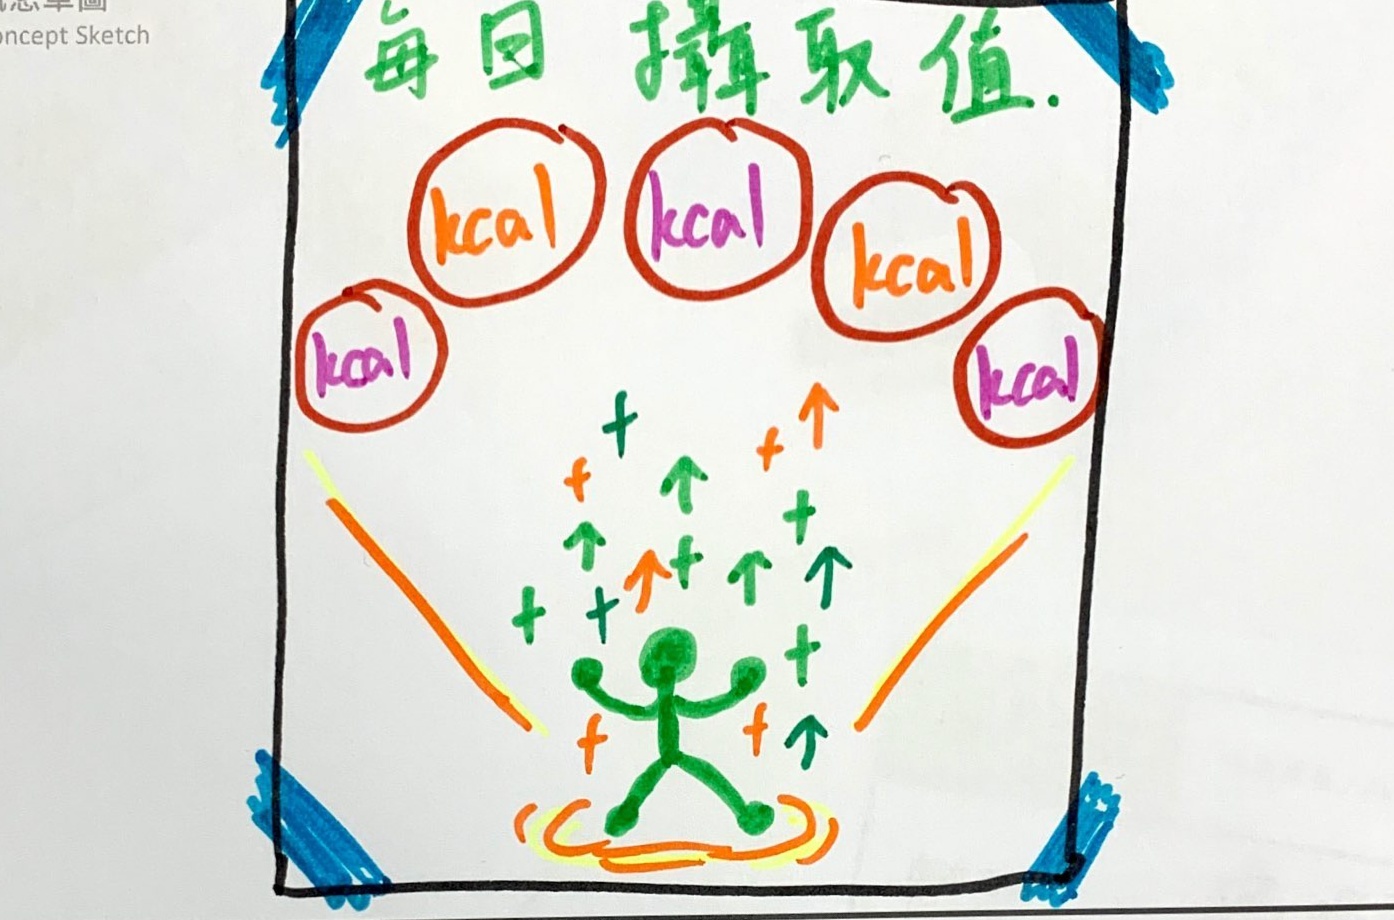 念草圖
oncept Sketch
每日攝取值.
kcal
kcal
kcal
kcal
kcal
+ ↑
+
+ ↑
+
↑ +
↑ + ↑ ↑
+ +
+
+ + ↑